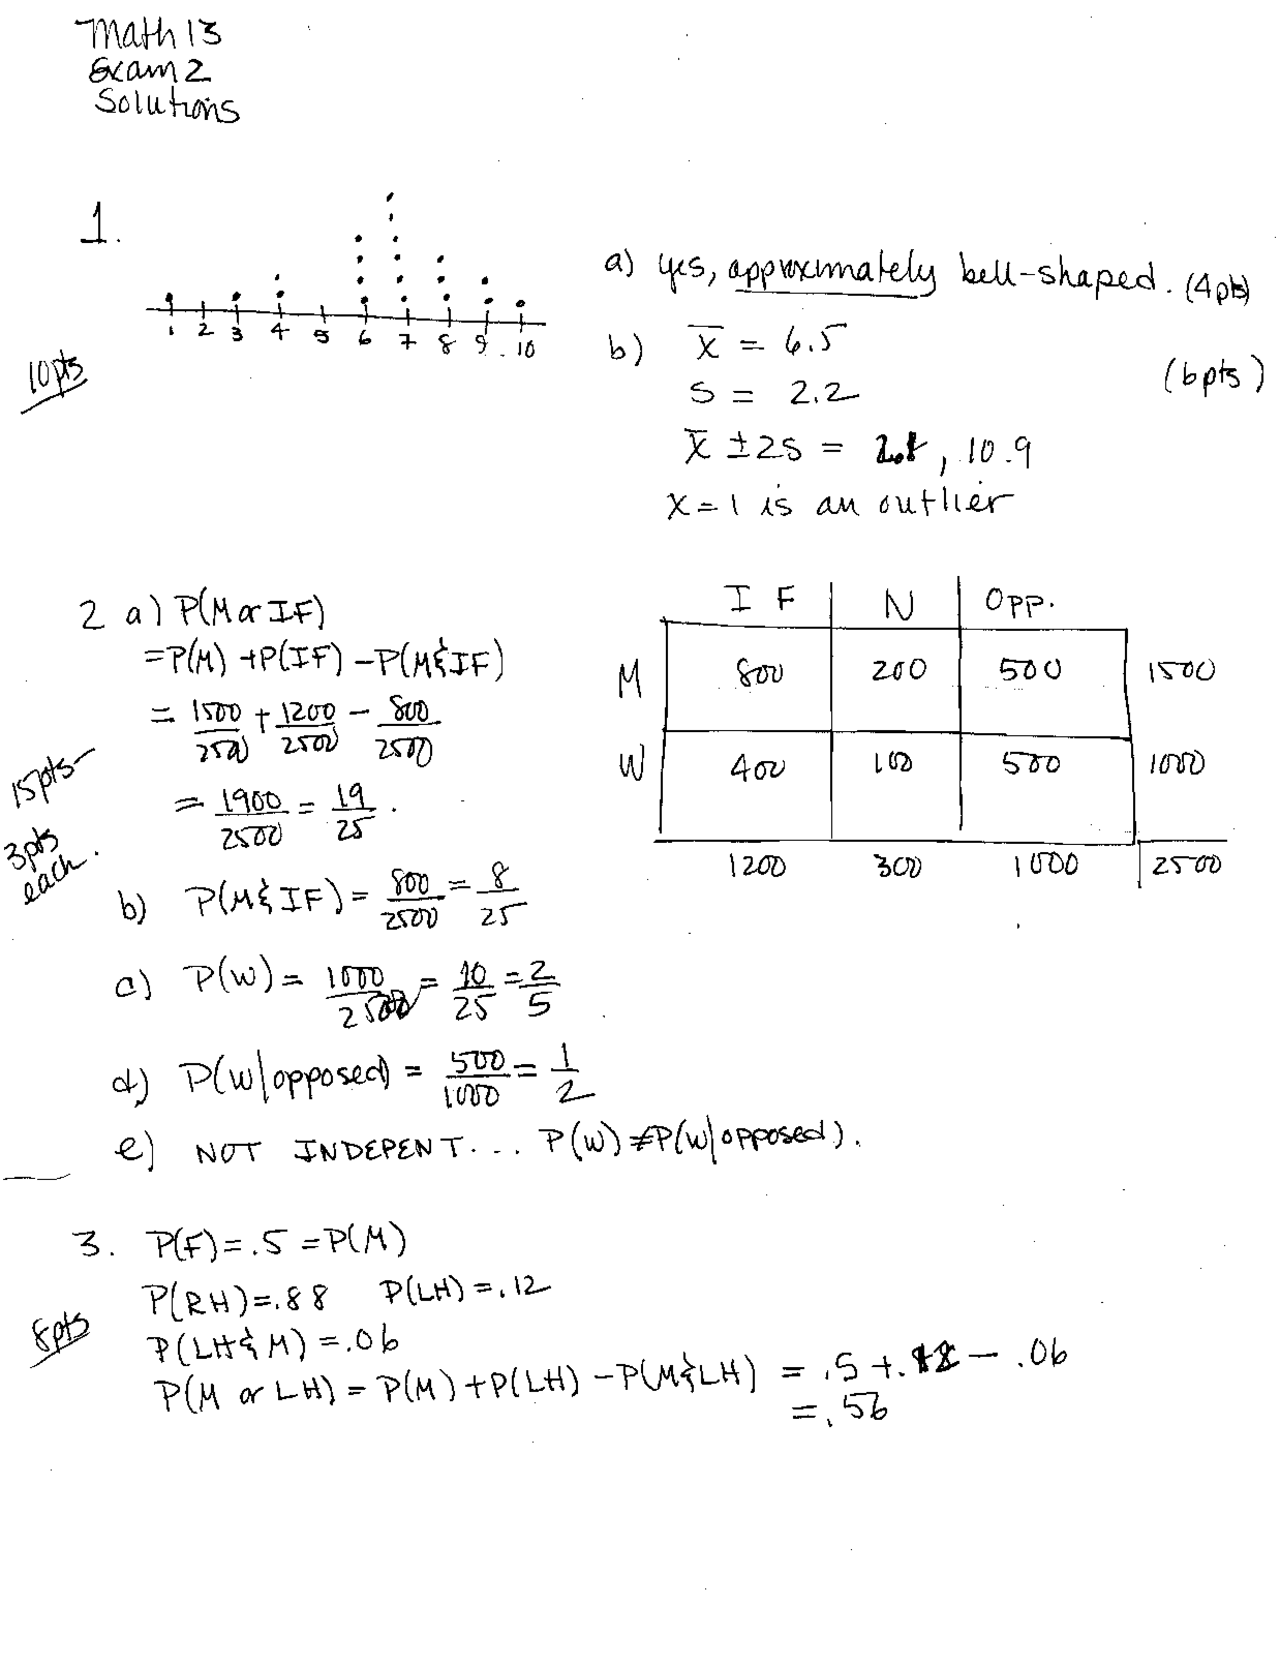 Math 13
Exam 2
Solutions
1.
10pts
1 2 3 4 5 6 7 8 9 10
a) yes, approximately bell-shaped. (4pts)
b) x̄ = 6.5
s = 2.2
(6pts)
x̄ ± 2s = 2.1, 10.9
x = 1 is an outlier
2 a) P(M or IF)
= P(M) + P(IF) - P(M & IF)
= 1500/2500 + 1200/2500 - 800/2500
= 1900/2500 = 19/25.
15pts
3pts each.
I F N Opp.
M 800 200 500 1500
W 400 100 500 1000
1200 300 1000 2500
b) P(M & IF) = 800/2500 = 8/25
c) P(W) = 1000/2500 = 10/25 = 2/5
d) P(W|opposed) = 500/1000 = 1/2
e) NOT INDEPENT... P(W) ≠ P(W|opposed).
3. P(F) = .5 = P(M)
P(RH) = .88 P(LH) = .12
8pts
P(LH & M) = .06
P(M or LH) = P(M) + P(LH) - P(M & LH) = .5 + .12 - .06
= .56